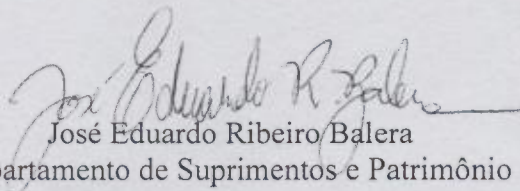 José Eduardo R. Balera
José Eduardo Ribeiro Balera
partamento de Suprimentos e Patrimônio